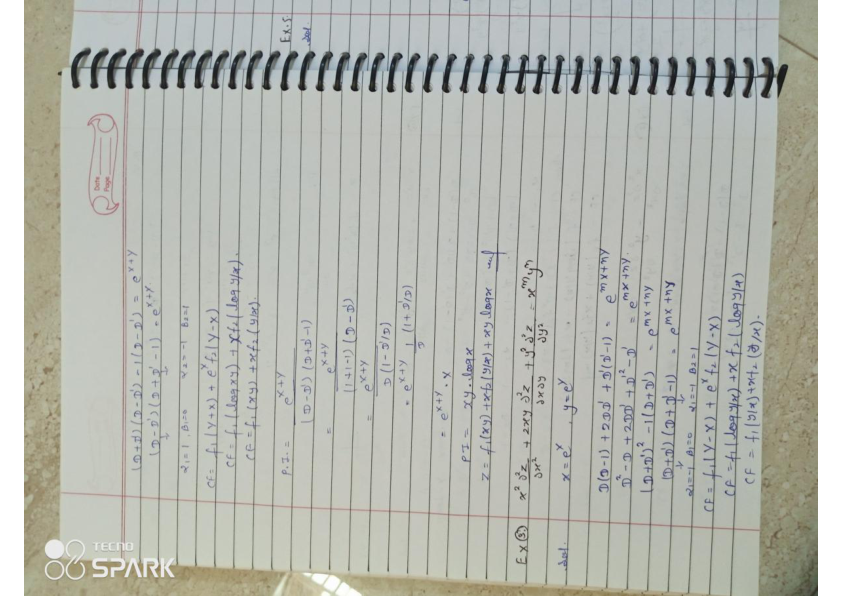 Ex.5.
sol.
Date
Page
(D+D')(D-D') -1(D-D') = e^x+y
(D-D')(D+D'-1) = e^x+y
α1=1, B1=0 α2=-1 B2=1
CF = f1(y+x) + e^x f2(y-x)
CF = f1(log xy) + x f2(log y/x).
CF = f1(xy) + x f2(y/x).
P.I. = e^x+y / (D-D')(D+D'-1)
= e^x+y / (1+1-1)(D-D')
= e^x+y / D(1-D'/D)
= e^x+y 1/D (1+D'/D)
= e^x+y . x
P.I = xy. log x
z = f1(xy) + x f2(y/x) + xy log x
Ex(3) x² ∂²z/∂x² + 2xy ∂²z/∂x∂y + y² ∂²z/∂y² = x^m y^n
sol. x = e^x, y = e^y
D(D-1) + 2DD' + D'(D'-1) = e^mx+ny
D² - D + 2DD' + D'² - D' = e^mx+ny
(D+D')² - 1(D+D') = e^mx+ny
(D+D')(D+D'-1) = e^mx+ny
α1=-1 B1=0 α2=-1 B2=1
CF = f1(y-x) + e^x f2(y-x)
CF = f1(log y/x) + x f2(log y/x)
CF = f1(y/x) + x f2(y/x).
TECNO
SPARK